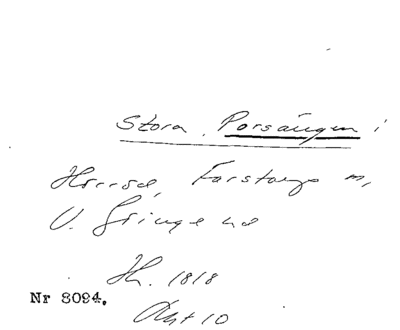 Stora Porsängen i
Harrsa, Torstorps m,
V. Ginge hd
H. 1818
Nr 8094.
Akt 10